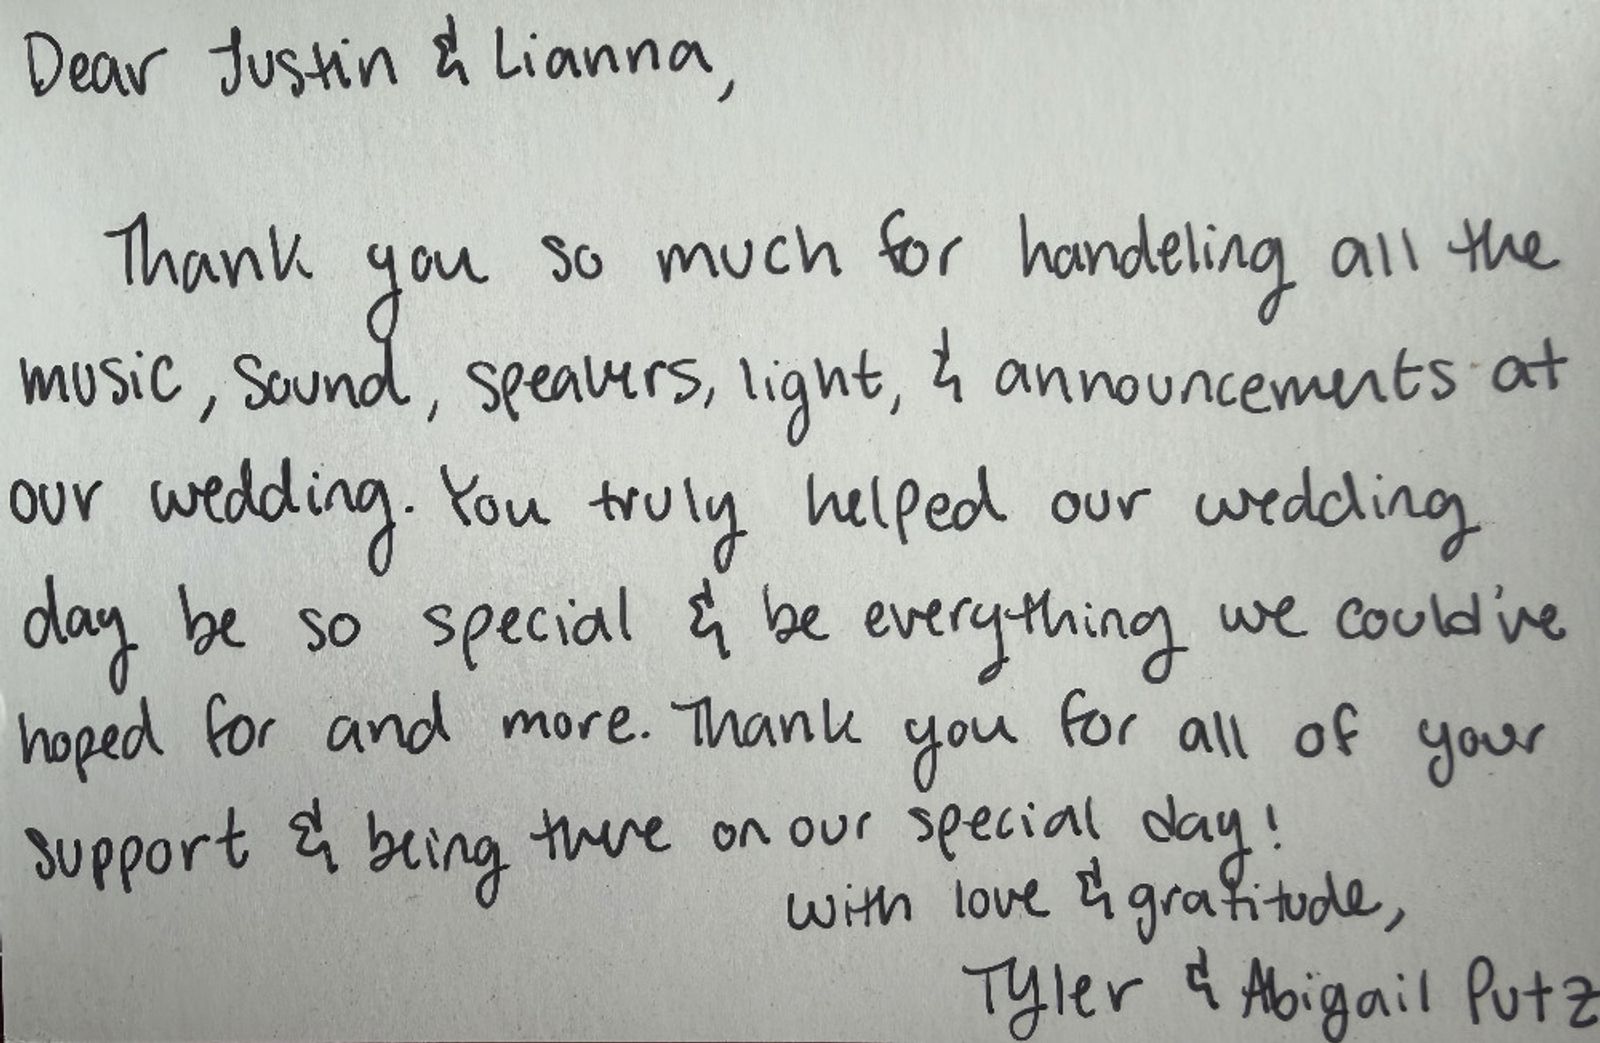 Dear Justin & Lianna,
Thank you so much for handeling all the
music, sound, speakers, light, & announcements at
our wedding. You truly helped our wedding
day be so special & be everything we could've
hoped for and more. Thank you for all of your
support & being there on our special day!
with love & gratitude,
Tyler & Abigail Putz